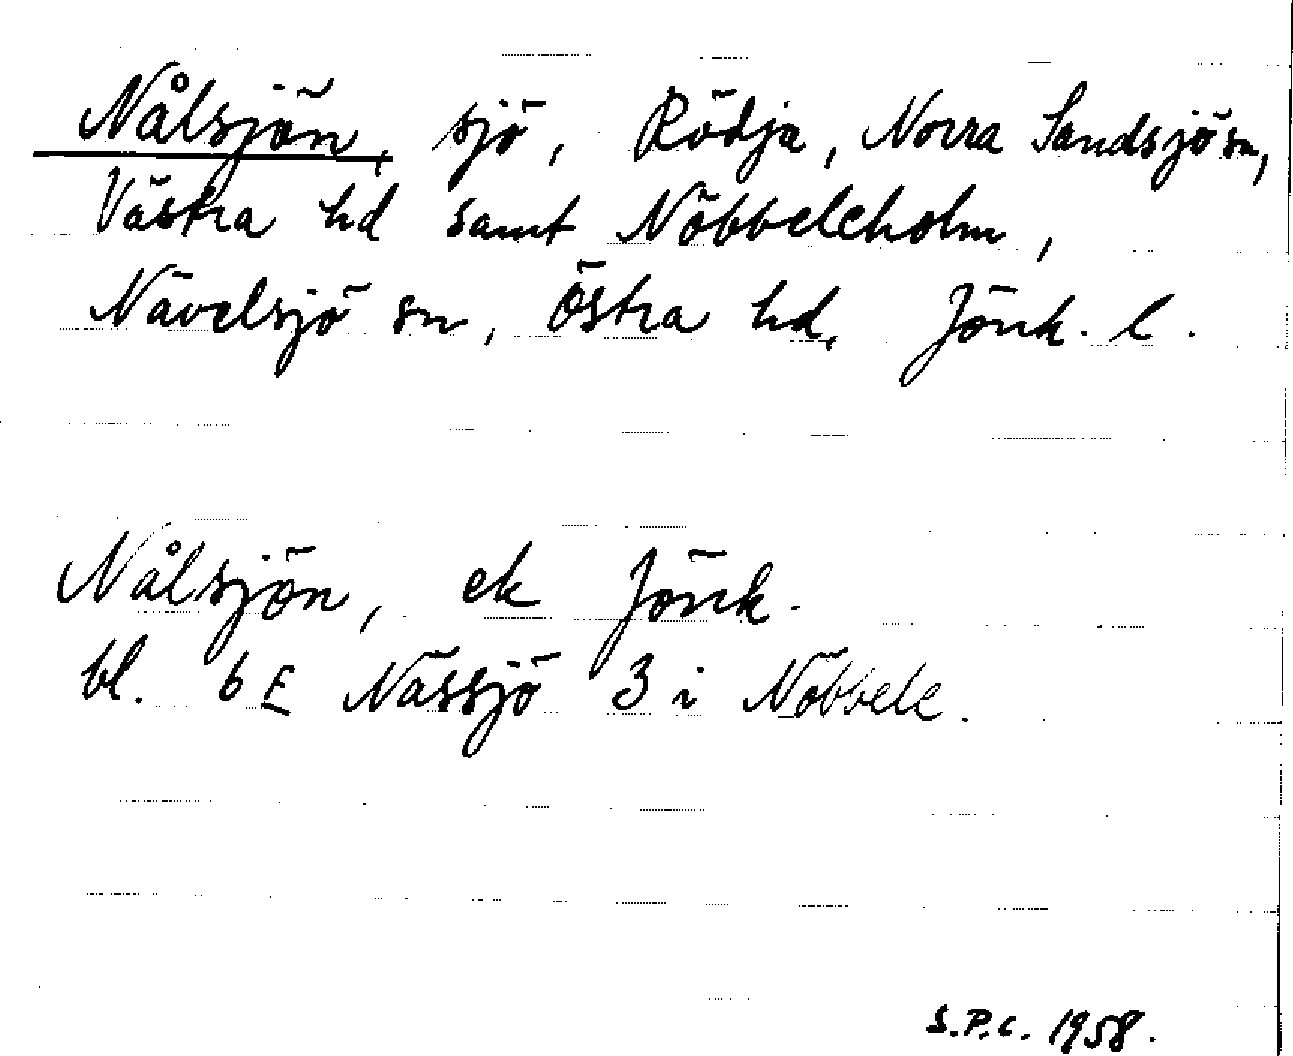 Nålsjön, sjö, Rödja, Norra Sandsjö sn,
Västra hd samt Nöbbeleholm,
Nävelsjö sn, Östra hd, Jönk. l.
Nålsjön, ek Jönk.
bl. 6 E Nässjö 3 i Nöbbele.
S.P.C. 1958.